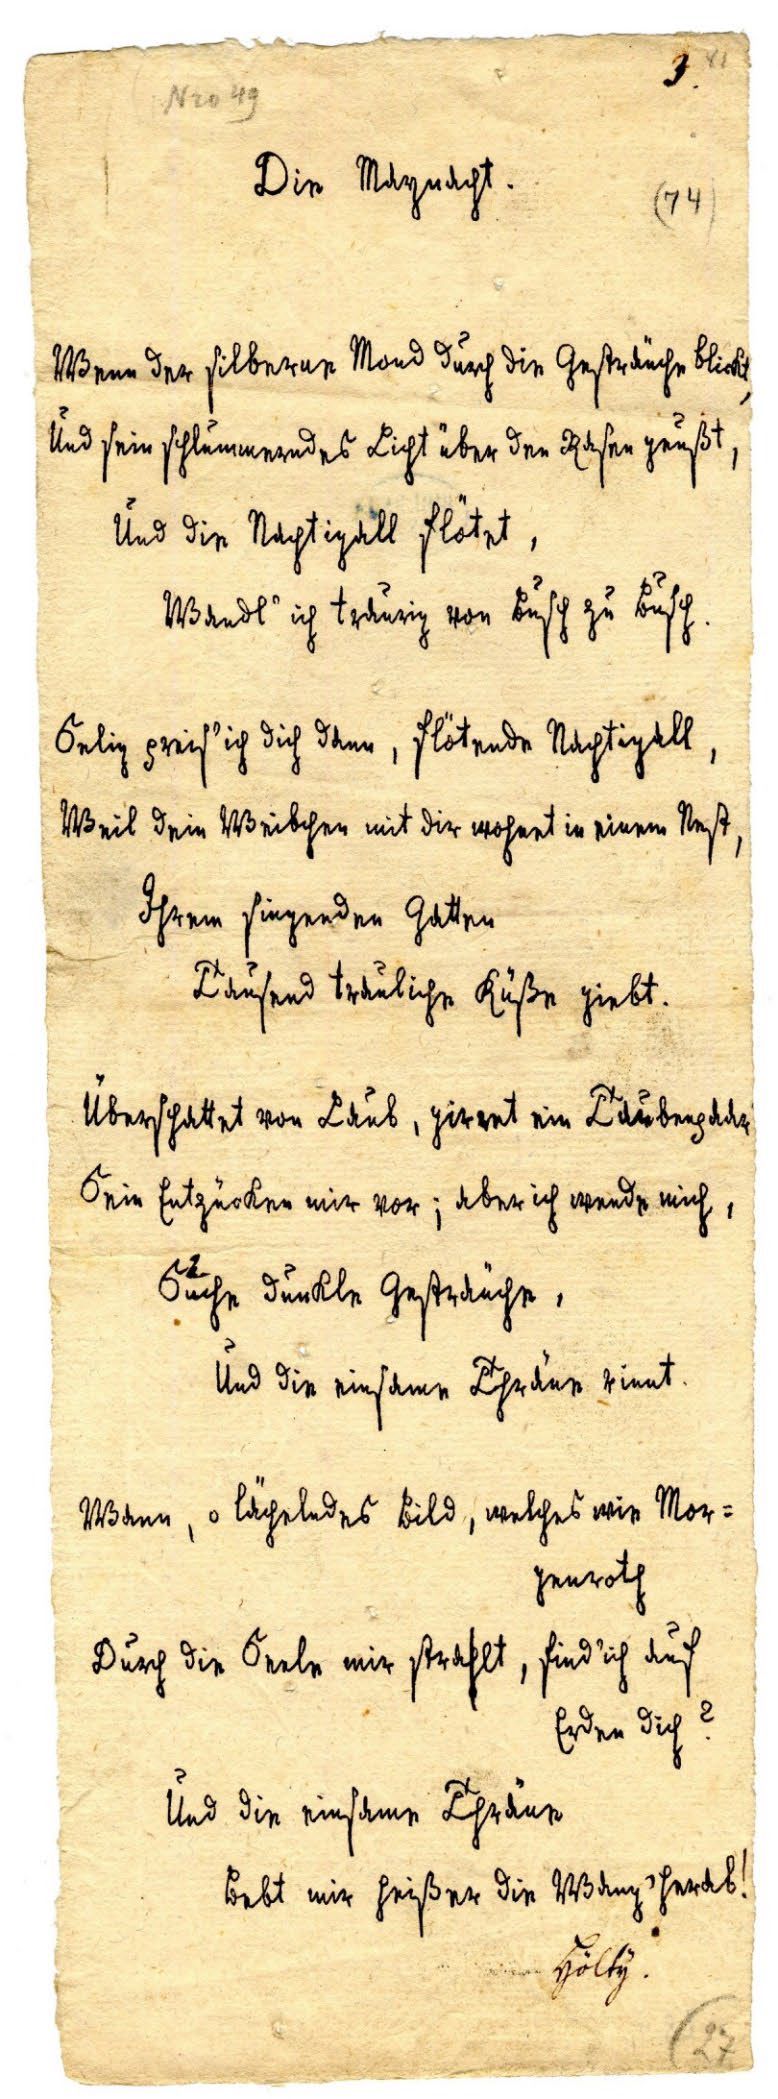 Nro 49
3.
Die Maynacht.
(74)
Wenn der silberne Mond durch die Gesträuche blickt,
Und sein schlummerndes Licht über den Rasen geußt,
Und die Nachtigall flötet,
Wandl' ich traurig von Busch zu Busch.
Selig preis' ich dich dann, flötende Nachtigall,
Weil dein Weibchen mit dir wohnet in einem Nest,
Ihrem singenden Gatten
Tausend trauliche Küße giebt.
Überschattet von Laub, girret ein Taubenpaar
Sein Entzücken mir vor; aber ich wende mich,
Suche dunkle Gesträuche,
Und die einsame Thräne rinnt.
Wann, o lächelndes Bild, welches wie Mor=
genroth
Durch die Seele mir strahlt, find' ich auf
Erden dich?
Und die einsame Thräne
Bebt mir heißer die Wang' herab!
Hölty.
(27